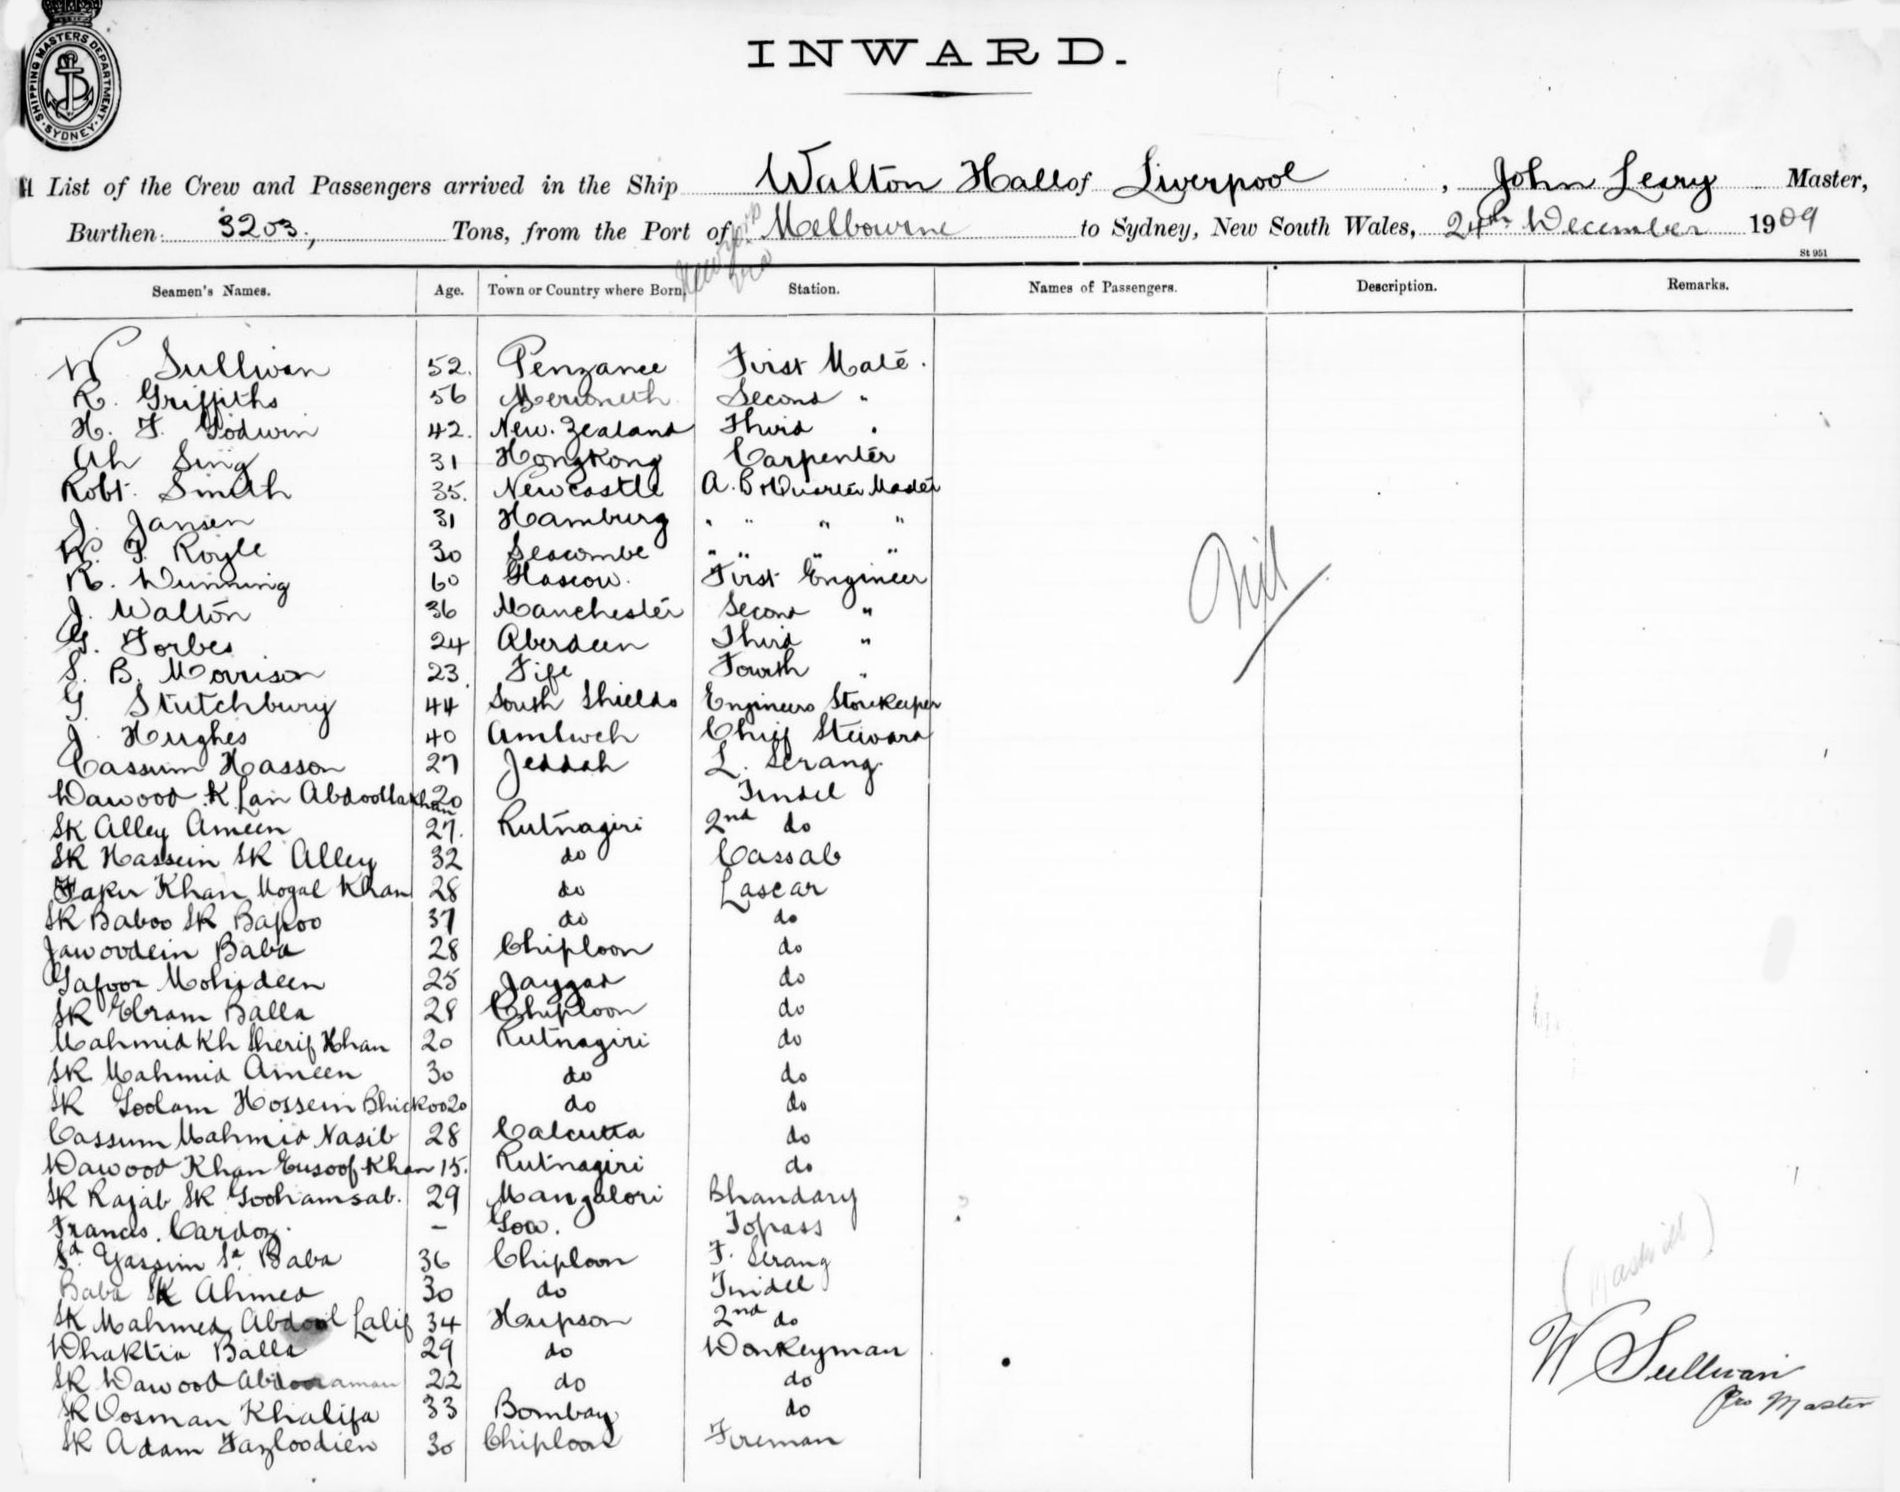 SHIPPING MASTERS DEPARTMENT
SYDNEY
INWARD.
A List of the Crew and Passengers arrived in the Ship Walton Hall of Liverpool, John Leary Master,
Burthen 3203, Tons, from the Port of Melbourne to Sydney, New South Wales, 24th December 1909
St 951
Seamen's Names. Age. Town or Country where Born, Station. Names of Passengers. Description. Remarks.
W Sullivan 52. Penzance First Mate.
R. Griffiths 56 Merioneth Second "
H. F. Godwin 42. New. Zealand Third "
Ah Sing 31 HongKong Carpenter
Robt. Smith 35. Newcastle A.B & Quarter Master
J. Jansen 31 Hamburg " " " "
W. F. Royle 30 Seacombe " " " "
Nil
R. Winning 60 Glascow. First Engineer
J. Walton 36 Manchester Second "
G. Forbes 24 Aberdeen Third "
S. B. Morrison 23. Fife Fourth "
G Stutchbury 44 South Shields Engineers Storekeeper
J. Hughes 40 Amlwch Chief Steward
Cassum Hasson 27 Jeddah L. Serang
Dawood Khan Abdoolla Khan 20 Tindel
SK Alley Ameen 27. Rutnagiri 2nd do
SK Hassein SK Alley 32 do Cassab
Fakir Khan Mogal Khan 28 do Lascar
SK Baboo SK Bapoo 37 do do
Jawoodein Baba 28 Chiploon do
Gafoor Mohideen 25 Jaygad do
SK Ebram Balla 28 Chiploon do
Mahmid Kh Sherif Khan 20 Rutnagiri do
SK Mahmid Ameen 30 do do
SK Goolam Hossein Bhickoo 20 do do
Cassum Mahmid Nasib 28 Calcutta do
Dawood Khan Eusoof Khan 15. Rutnagiri do
SK Rajab SK Goohamsab. 29 Mangalori Bhandary
Francis. Cardoz. – Goa. Topass
Sd. Yassim Sd. Baba 36 Chiploon F. Serang
Baba SK Ahmed 30 do Tindel
SK Mahmed Abdool Latif 34 Harpson 2nd do
Dhaktia Balla 29 do Donkeyman
SK Dawood Abdooraman 22 do do
SK Oosman Khalifa 33 Bombay do
SK Adam Fazloodien 30 Chiploon Fireman
W Sullivan
Pro Master